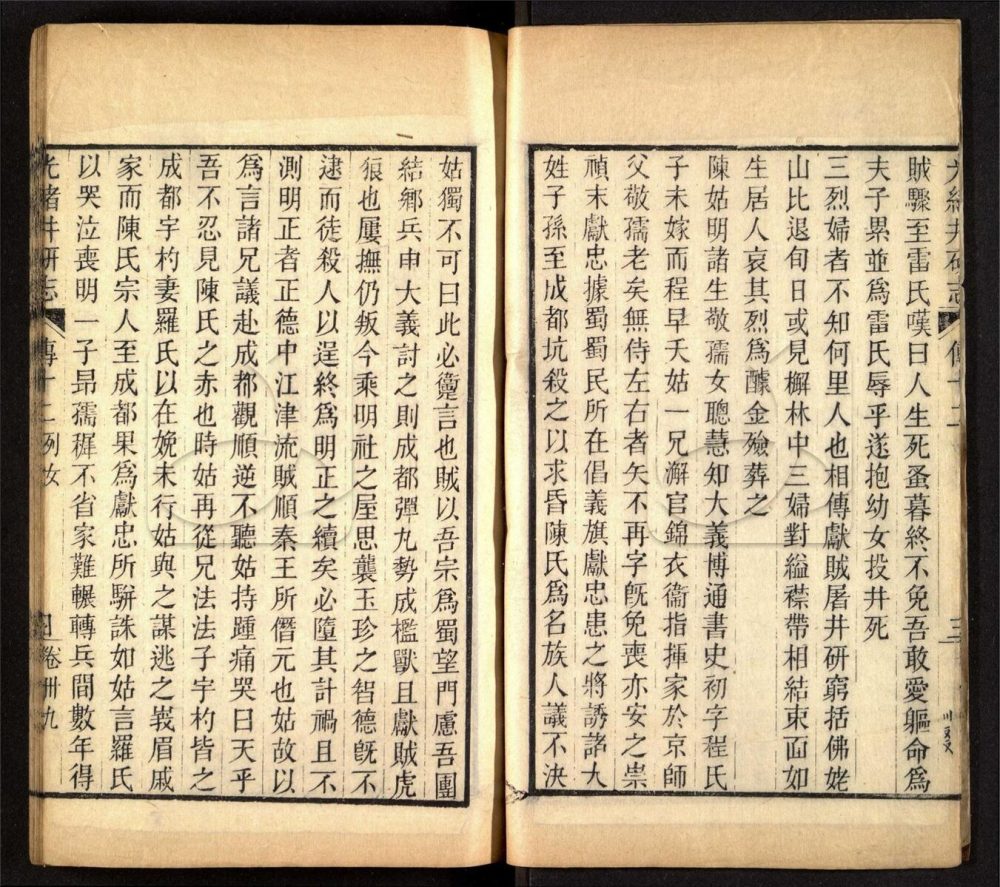 光緒井研志
傳十二
三
賊驟至雷氏嘆曰人生死蚤暮終不免吾敢愛軀命為
夫子累並為雷氏辱乎遂抱幼女投井死
三烈婦者不知何里人也相傳獻賊屠井研窮括佛姥
山比退旬日或見檞林中三婦對縊襟帶相結束面如
生居人哀其烈為醵金殮葬之
陳姑明諸生敬孺女聰慧知大義博通書史初字程氏
子未嫁而程早夭姑一兄澥官錦衣衞指揮家於京師
父敬孺老矣無侍左右者矢不再字旣免喪亦安之崇
禎末獻忠據蜀蜀民所在倡義旗獻忠患之將誘諸大
姓子孫至成都坑殺之以求昏陳氏為名族人議不決
姑獨不可曰此必䜚言也賊以吾宗為蜀望門慮吾團
結鄉兵申大義討之則成都彈九勢成檻獸且獻賊虎
狼也屢撫仍叛今乘明社之屋思襲玉珍之智德旣不
逮而徒殺人以逞終為明正之續矣必墮其計禍且不
測明正者正德中江津流賊順秦王所僭元也姑故以
為言諸兄議赴成都觀順逆不聽姑持踵痛哭曰天乎
吾不忍見陳氏之赤也時姑再從兄法法子宇杓皆之
成都宇杓妻羅氏以在娩未行姑與之謀逃之峩眉戚
家而陳氏宗人至成都果為獻忠所駢誅如姑言羅氏
以哭泣喪明一子昻孺穉不省家難輾轉兵間數年得
光緒井研志
傳十二列女
卷卅九